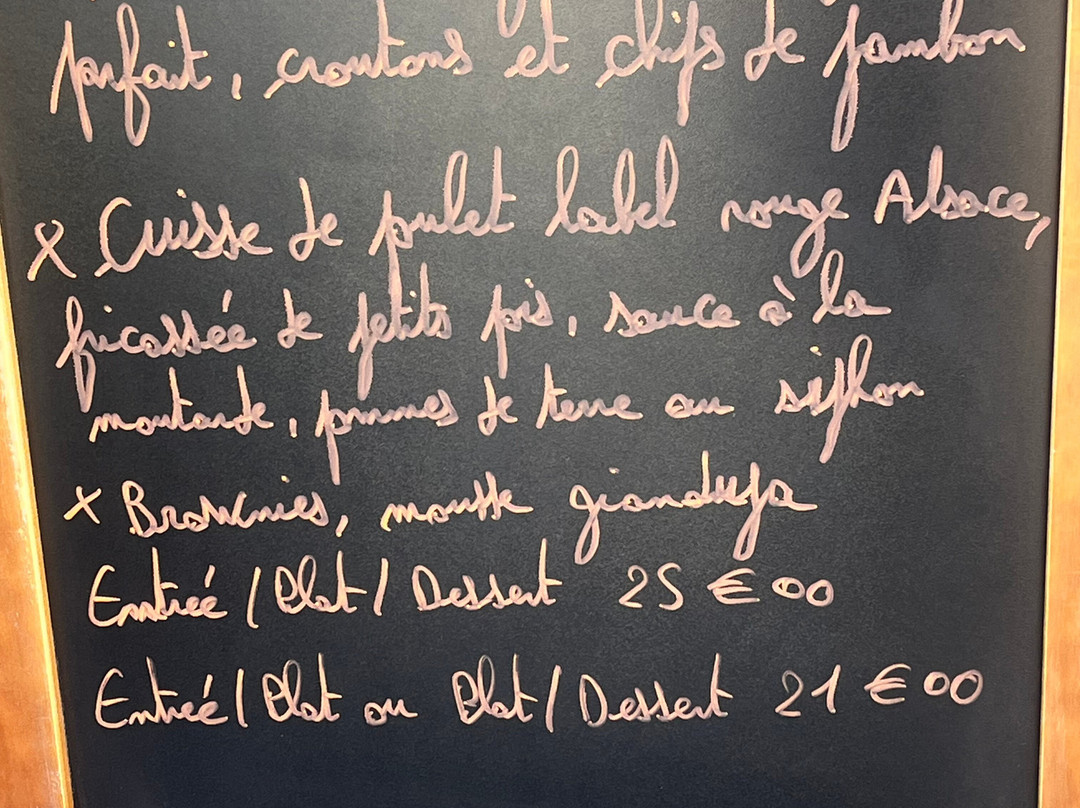 parfait, croutons et chips de jambon
x Cuisse de poulet label rouge Alsace,
fricassée de petits pois, sauce à la
moutarde, pommes de terre au siffhon
x Brownies, mousse gianduja
Entrée / Plat / Dessert 25 € 00
Entrée / Plat ou Plat / Dessert 21 € 00